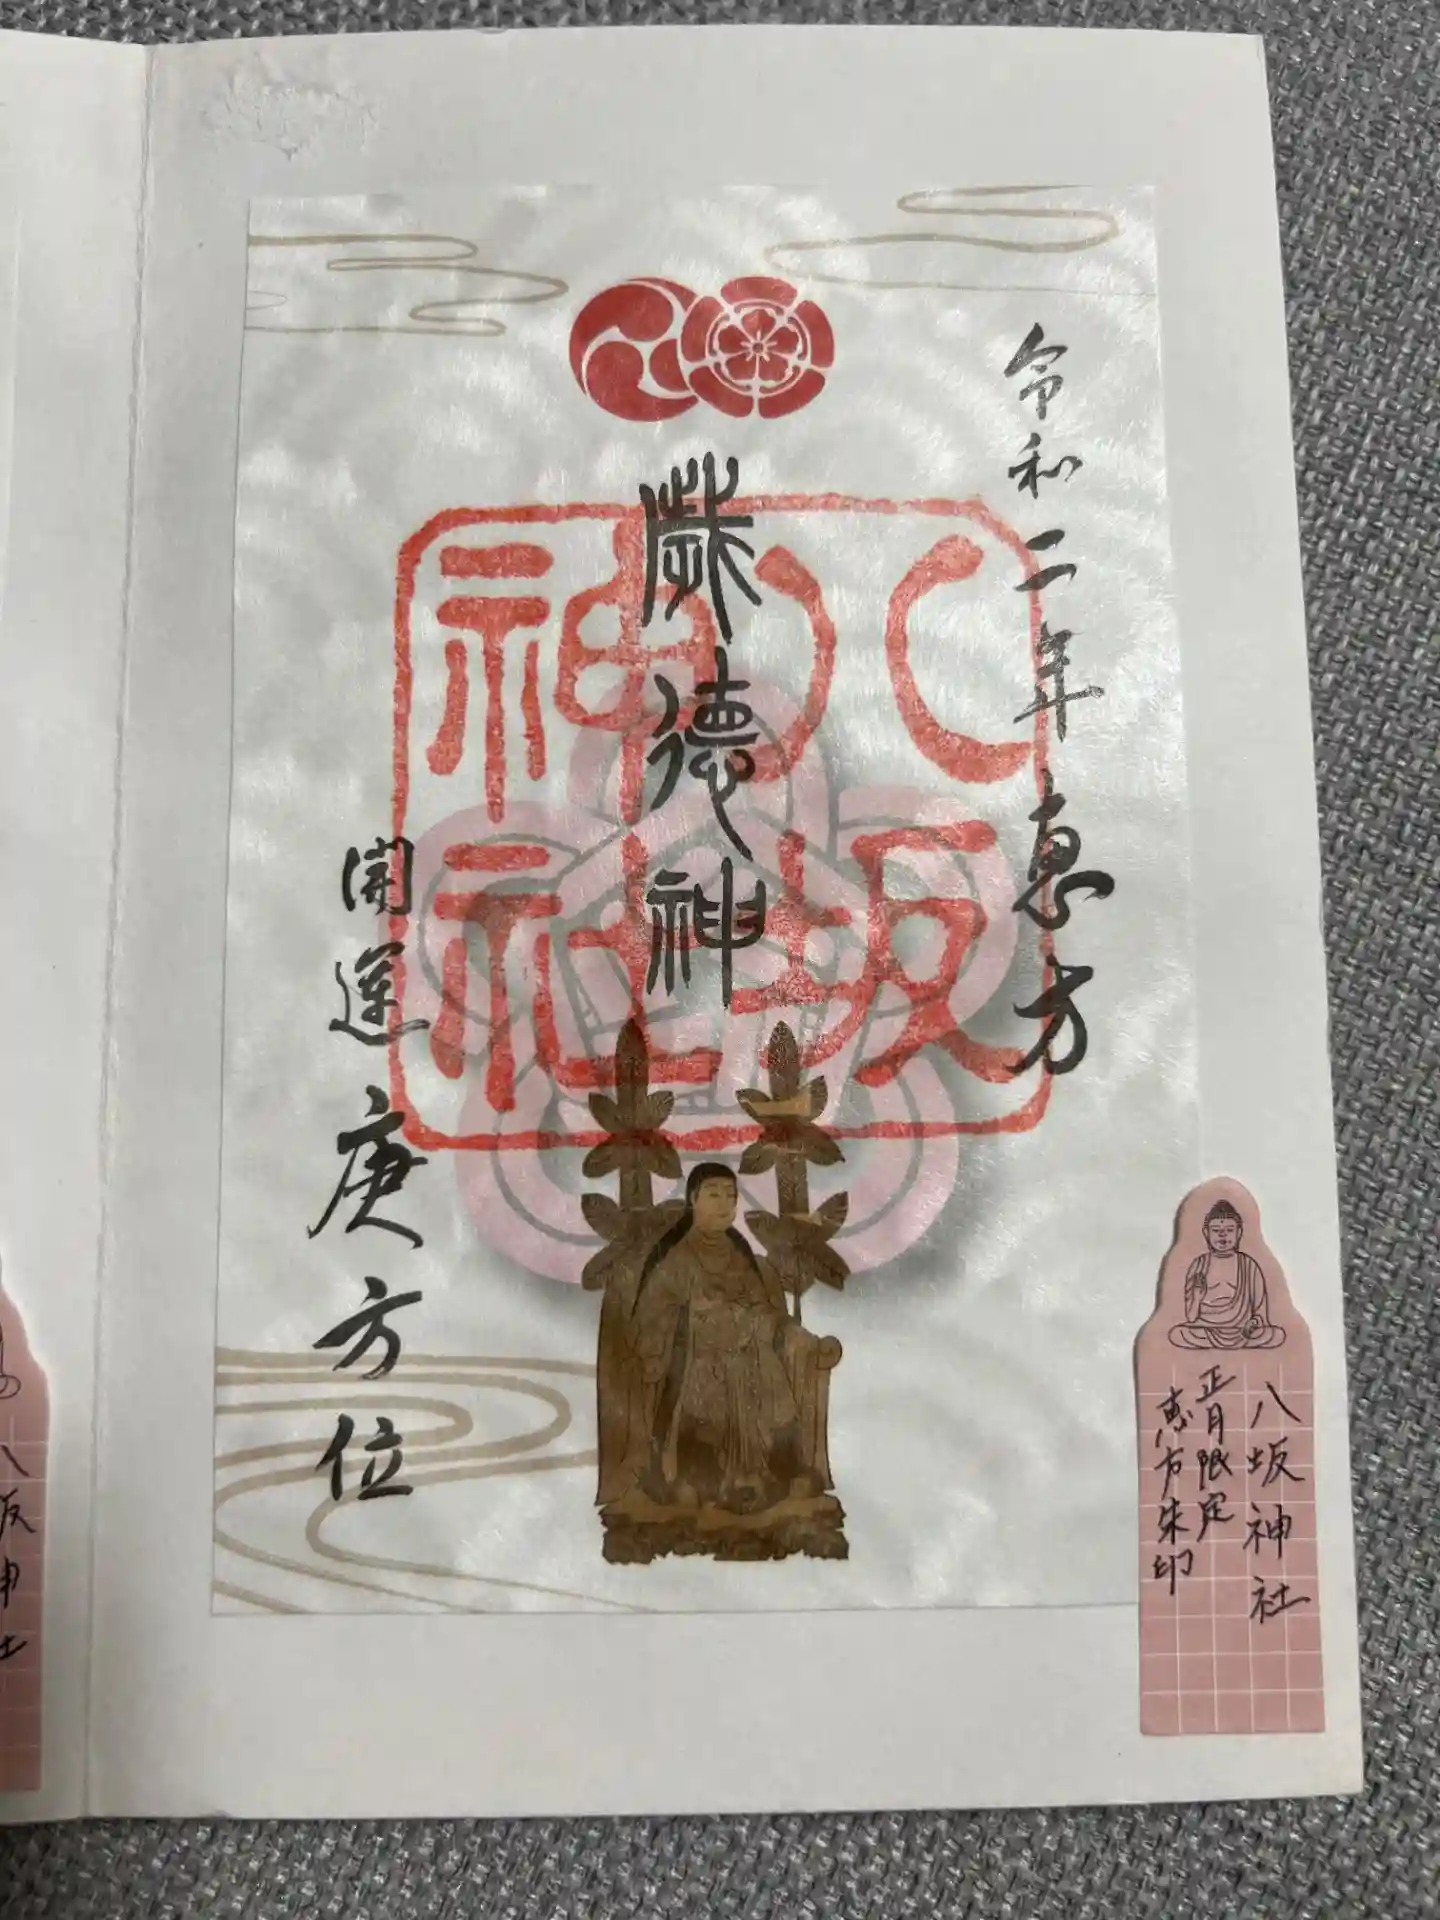 令和二年 恵方
歳徳神
開運 庚方位
八坂
神社
八坂神社
正月限定
恵方朱印
八坂神社